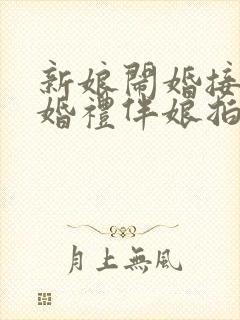 新娘鬧婚接
婚禮伴娘拍
月上無風